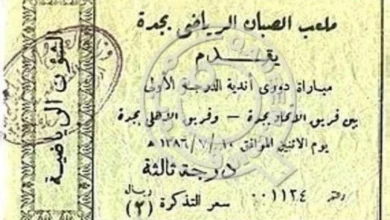 ملعب الصبان الرياضى بجدة
يقدم
مباراة دورى أندية الدرجة الأولى
بين فريق الاتحاد بجدة — وفريق الاهلى بجدة
يوم الاثنين الموافق ١٠ / ٧ / ١٣٨٦ هـ
درجة ثالثة
رقم ٠٠١١٢٤
سعر التذكرة (٢) ريال
الشئون الرياضية